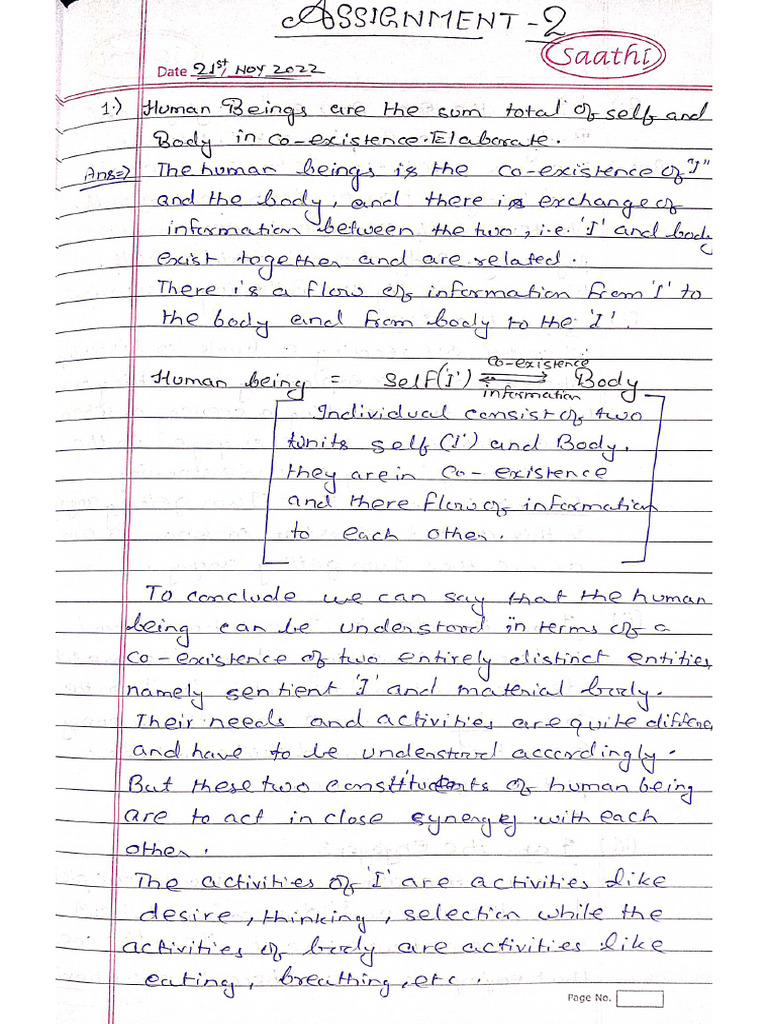 ASSIGNMENT-2
saathi
Date 21st NOV 2022
1.) Human Beings are the sum total of self and
Body in co-existence. Elaborate.
Ans=> The human beings is the co-existence of "I"
and the body, and there is exchange of
information between the two, i.e. 'I' and body
exist together and are related.
There is a flow of information from 'I' to
the body and from body to the 'I'.
co-existence
Human being = Self('I') ⇌ Body
information
Individual consist of two
units self ('I') and Body,
they are in co-existence
and there flow of information
to each other.
To conclude we can say that the human
being can be understood in terms of a
co-existence of two entirely distinct entities,
namely sentient 'I' and material body.
Their needs and activities are quite differen
and have to be understood accordingly.
But these two constituents of human being
are to act in close synergy with each
other.
The activities of 'I' are activities like
desire, thinking, selection while the
activities of body are activities like
eating, breathing, etc.
Page No.